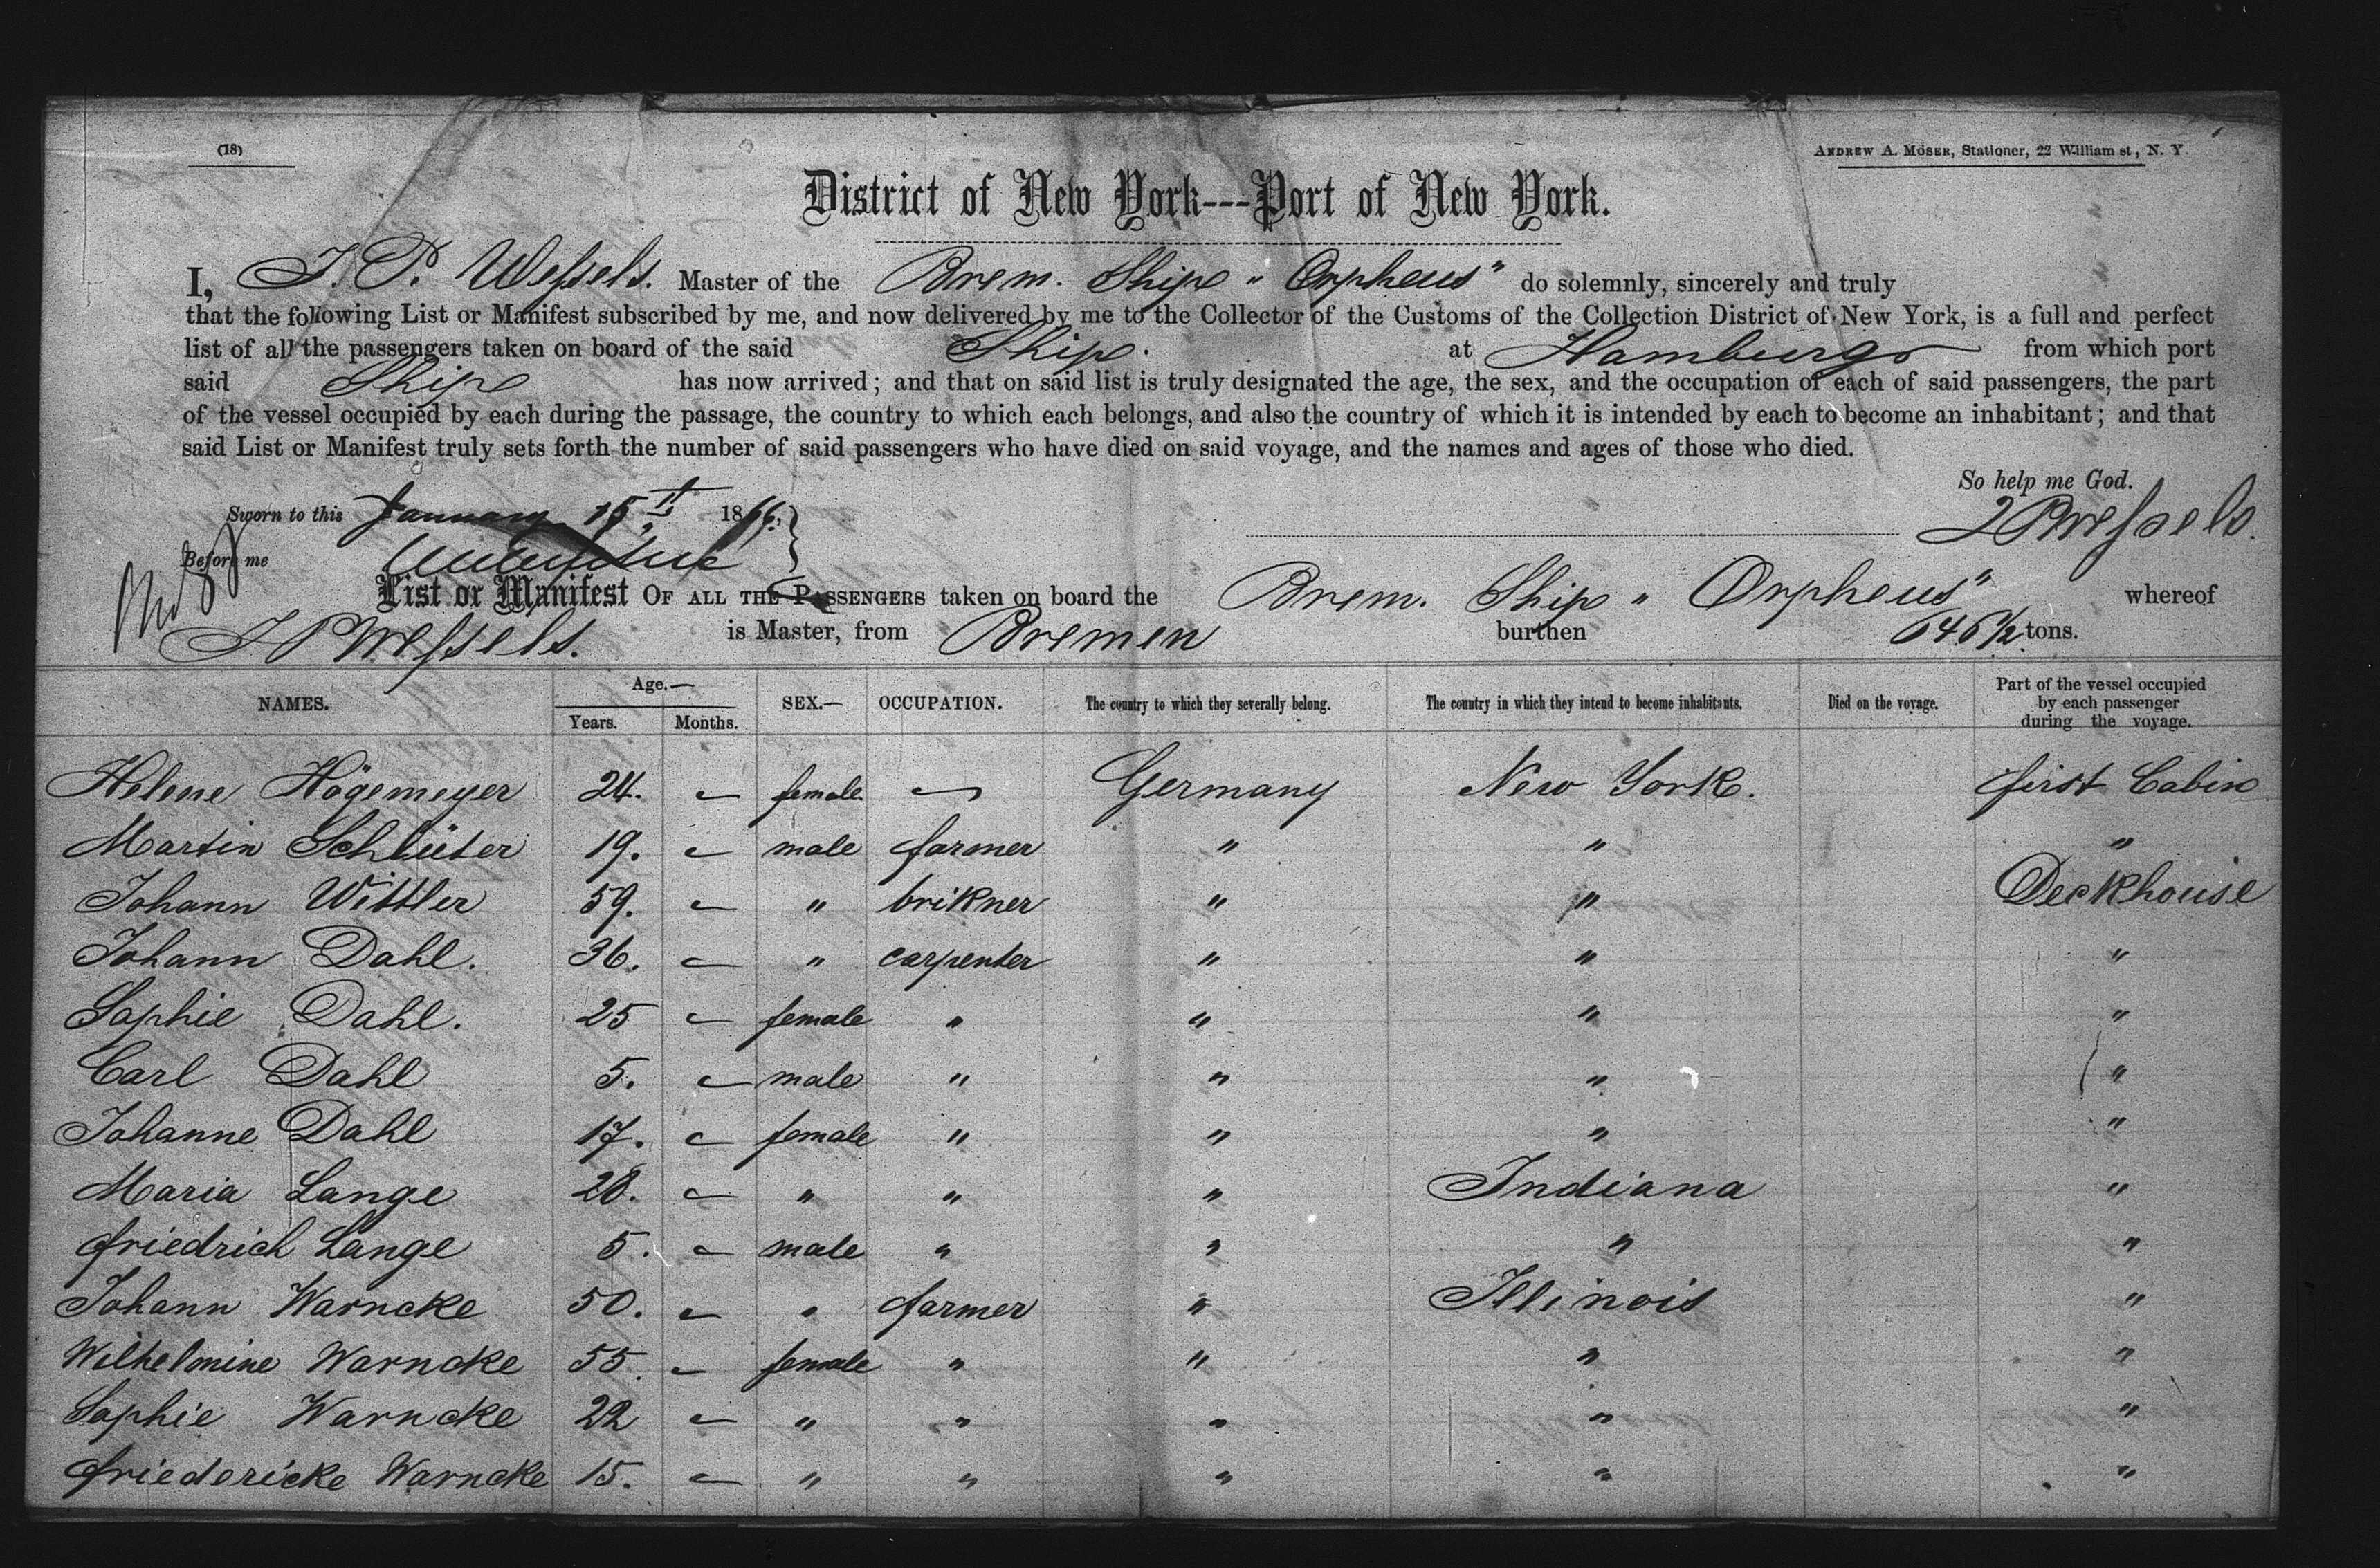 (18)
ANDREW A. MOSER, Stationer, 22 William st, N. Y.
District of New York---Port of New York.
I, J. P. Wessels. Master of the Brem. Ship "Orpheus" do solemnly, sincerely and truly
that the following List or Manifest subscribed by me, and now delivered by me to the Collector of the Customs of the Collection District of New York, is a full and perfect
list of all the passengers taken on board of the said Ship. at Hamburg from which port
said Ship has now arrived; and that on said list is truly designated the age, the sex, and the occupation of each of said passengers, the part
of the vessel occupied by each during the passage, the country to which each belongs, and also the country of which it is intended by each to become an inhabitant; and that
said List or Manifest truly sets forth the number of said passengers who have died on said voyage, and the names and ages of those who died.
So help me God.
Sworn to this January 15 1866. J P Wessels.
Before me
List or Manifest OF ALL THE PASSENGERS taken on board the Brem. Ship "Orpheus" whereof
J P Wessels. is Master, from Bremen burthen 646 1/2 tons.
NAMES. Age.— Years. Months. SEX.— OCCUPATION. The country to which they severally belong. The country in which they intend to become inhabitants. Died on the voyage. Part of the vessel occupied by each passenger during the voyage.
Helene Högemeyer 24. — female — Germany New York. first Cabin
Martin Schlüter 19. — male farmer " " "
Johann Wittler 59. — " brikner " " Deckhouse
Johann Dahl. 36. — " carpenter " " "
Sophie Dahl. 25 — female " " " "
Carl Dahl 5. — male " " " "
Johanne Dahl 17. — female " " " "
Maria Lange 28. — " " " Indiana "
Friedrich Lange 5. — male " " " "
Johann Warncke 50. — " farmer " Illinois "
Wilhelmine Warncke 55. — female " " " "
Sophie Warncke 22 — " " " " "
Friedericke Warncke 15. — " " " " "